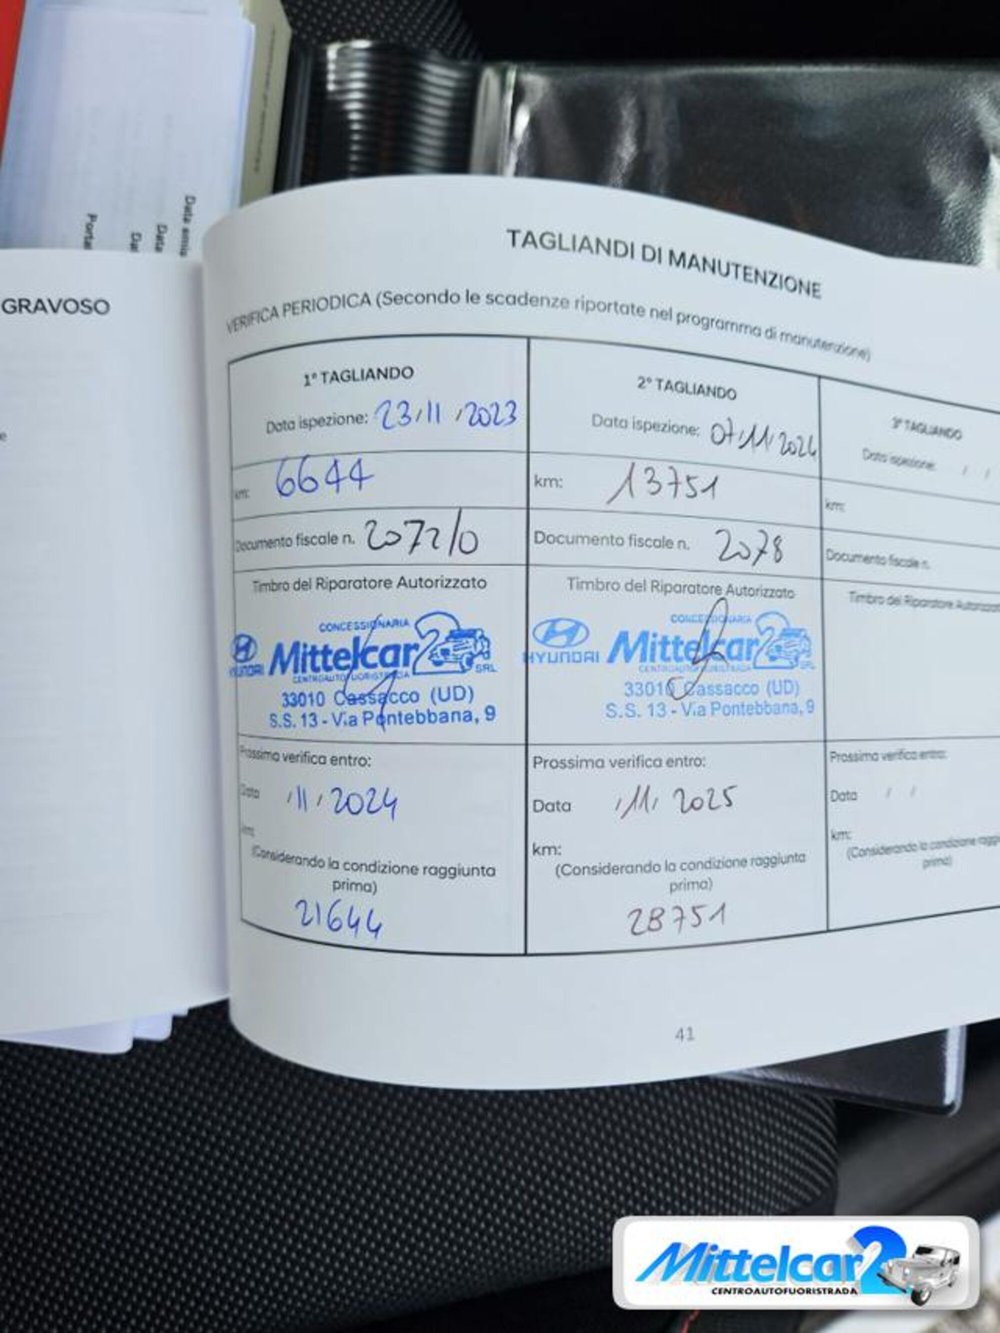 Data
Data
GRAVOSO
TAGLIANDI DI MANUTENZIONE
VERIFICA PERIODICA (Secondo le scadenze riportate nel programma di manutenzione)
1° TAGLIANDO
Data ispezione: 23/11/2023
km: 6644
Documento fiscale n. 2072/0
Timbro del Riparatore Autorizzato
CONCESSIONARIA
HYUNDAI Mittelcar 2 SRL
CENTROAUTOFUORISTRADA
33010 Cassacco (UD)
S.S. 13 - Via Pontebbana, 9
Prossima verifica entro:
Data / 11 / 2024
km:
(Considerando la condizione raggiunta
prima)
21644
2° TAGLIANDO
Data ispezione: 07/11/2024
km: 13751
Documento fiscale n. 2078
Timbro del Riparatore Autorizzato
CONCESSIONARIA
HYUNDAI Mittelcar 2 SRL
CENTROAUTOFUORISTRADA
33010 Cassacco (UD)
S.S. 13 - Via Pontebbana, 9
Prossima verifica entro:
Data / 11 / 2025
km:
(Considerando la condizione raggiunta
prima)
28751
3° TAGLIANDO
Data ispezione: / /
km:
Documento fiscale n.
Timbro del Riparatore Autorizzato
Prossima verifica entro:
Data / /
km:
(Considerando la condizione raggiunta
prima)
41
Mittelcar 2
CENTROAUTOFUORISTRADA